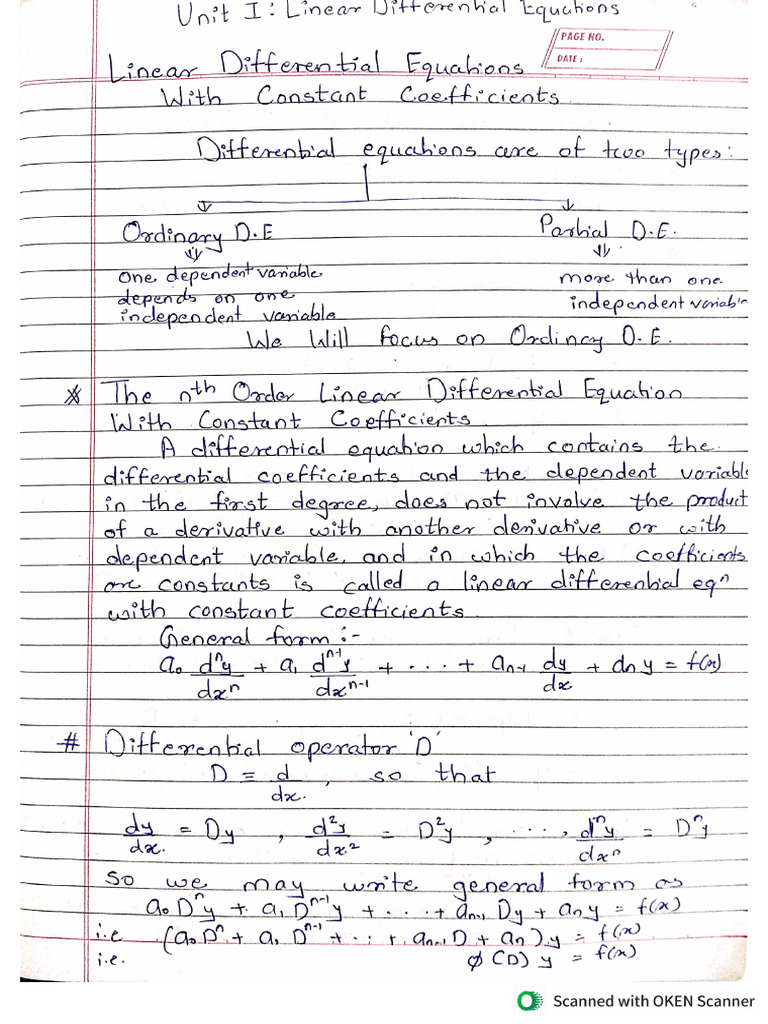 Unit I : Linear Differential Equations
PAGE NO.
DATE :
Linear Differential Equations
With Constant Coefficients
Differential equations are of two types:
Ordinary D.E
Partial D.E.
one dependent variable
depends on one
independent variable
more than one
independent variable
We Will focus on Ordinary O.E.
* The nth Order Linear Differential Equation
With Constant Coefficients
A differential equation which contains the
differential coefficients and the dependent variable
in the first degree, does not involve the product
of a derivative with another derivative or with
dependent variable, and in which the coefficients
are constants is called a linear differential eqⁿ
with constant coefficients
General form :-
a₀ dⁿy/dxⁿ + a₁ dⁿ⁻¹y/dxⁿ⁻¹ + ... + aₙ₋₁ dy/dx + aₙ y = f(x)
# Differential operator 'D'
D = d/dx, so that
dy/dx = Dy , d²y/dx² = D²y , ..., dⁿy/dxⁿ = Dⁿy
so we may write general form as
a₀Dⁿy + a₁Dⁿ⁻¹y + ... + aₙ₋₁ Dy + aₙy = f(x)
i.e (a₀Dⁿ + a₁Dⁿ⁻¹ + ... + aₙ₋₁D + aₙ)y = f(x)
i.e. ϕ(D) y = f(x)
Scanned with OKEN Scanner